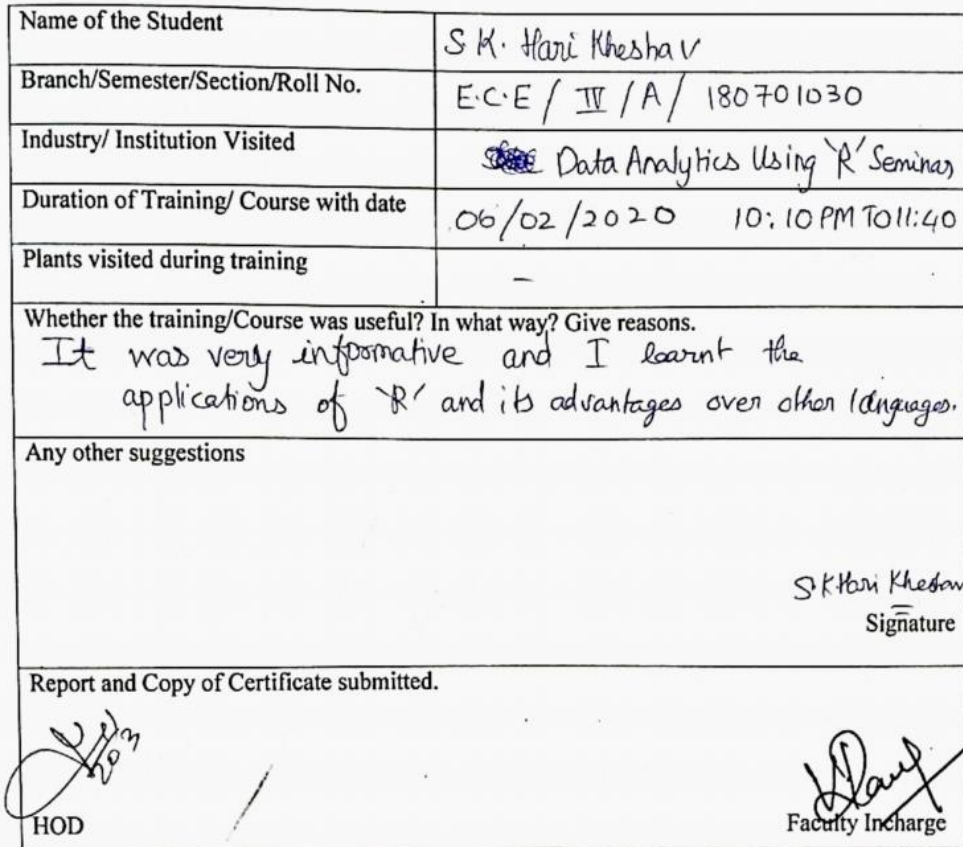 Name of the Student
S.K. Hari Kheshav
Branch/Semester/Section/Roll No.
E.C.E / IV / A / 180701030
Industry/ Institution Visited
Data Analytics Using 'R' Seminar
Duration of Training/ Course with date
06/02/2020 10:10 PM TO 11:40
Plants visited during training
-
Whether the training/Course was useful? In what way? Give reasons.
It was very informative and I learnt the
applications of 'R' and its advantages over other languages.
Any other suggestions
S.K Hari Kheshav
Signature
Report and Copy of Certificate submitted.
HOD
Faculty Incharge